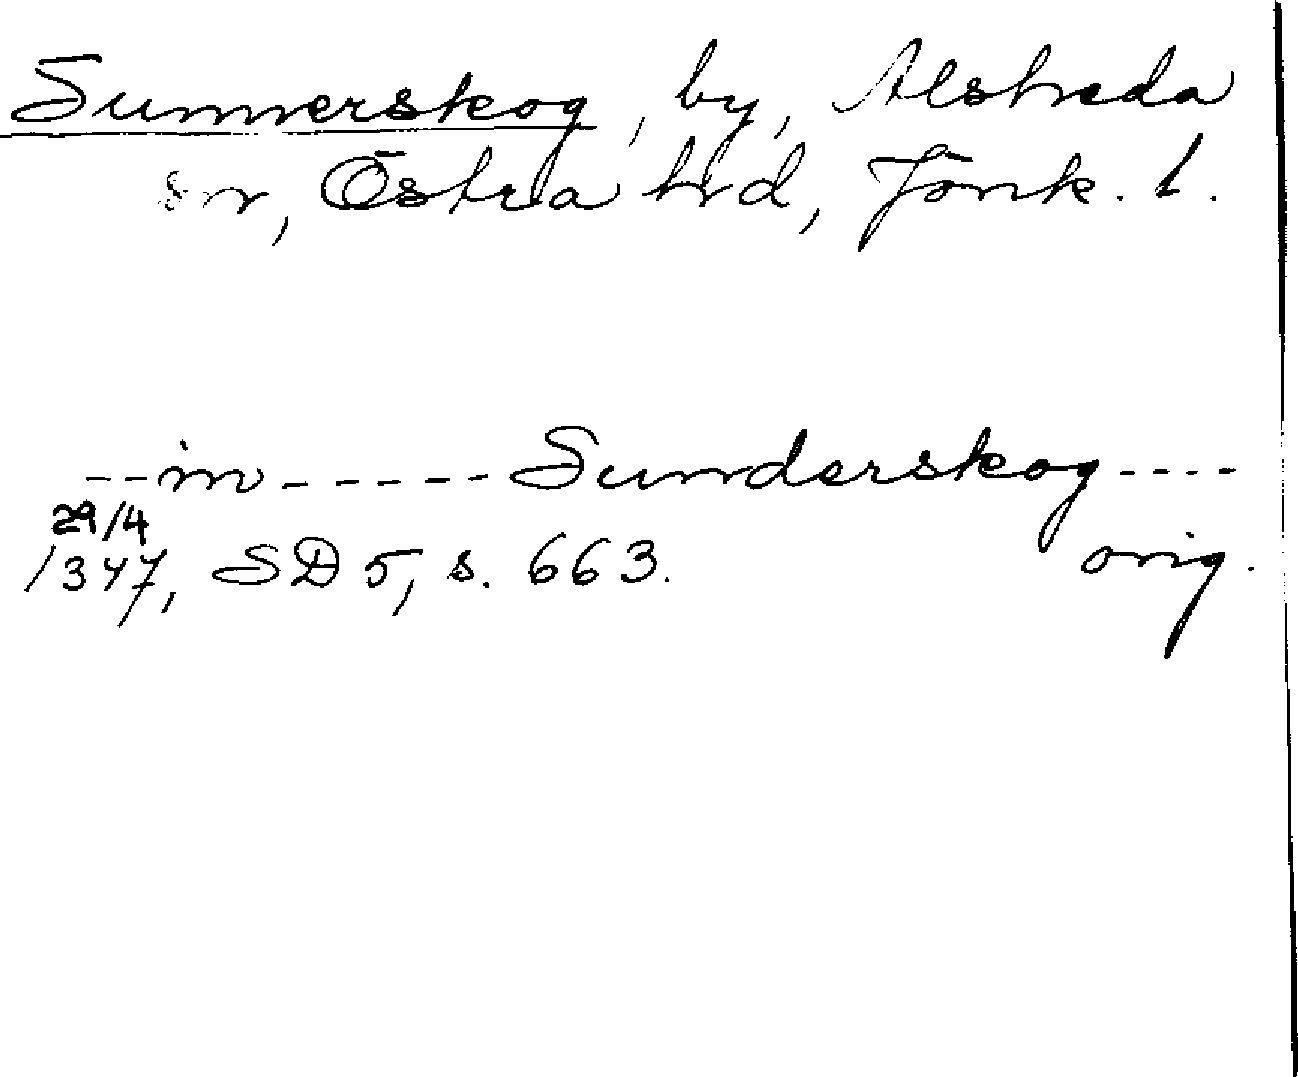 Sunnerskog, by, Alsheda
sn, Östra hd, Jönk. l.
-- in ----- Sunderskog ----
29/4
1347, SD 5, s. 663. orig.